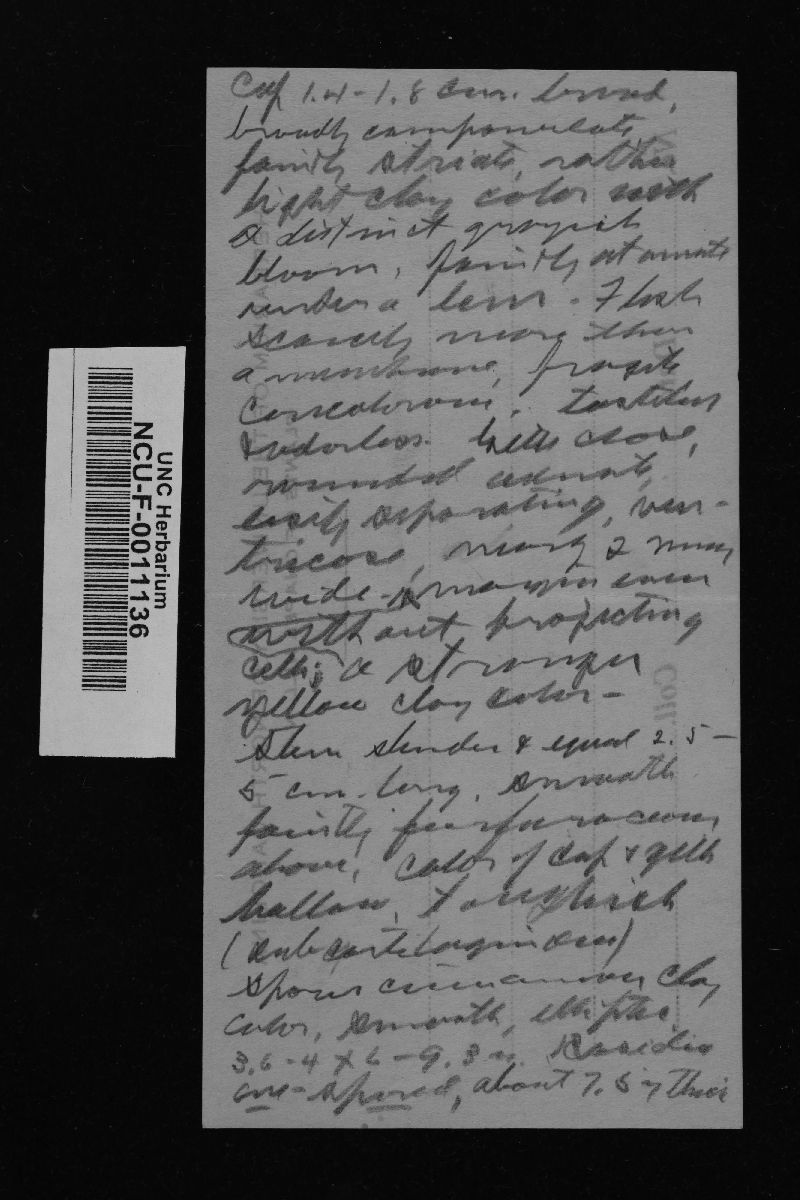 Cap 1.4-1.8 cm. broad,
broadly campanulate,
faintly striate, rather
light clay color with
a distinct grayish
bloom, faintly atomate
under a lens. Flesh
scarcely more than
a membrane, fragile
concolorous, tasteless
& odorless. Gills close,
rounded adnate,
easily separating, ven-
tricose, nearly 2 mm
wide, margin even
without projecting
cells; a stronger
yellow clay color-
Stem slender & equal 2.5-
5 cm. long, smooth
faintly furfuraceous
above, color of cap & gills
hollow, toughish
(subcartilaginous)
Spores cinnamon clay
color, smooth, elliptic
3.6-4 x 6- Basidia
one-spored, about 7.5 thick
UNC Herbarium
NCU-F-0011136
Coll.